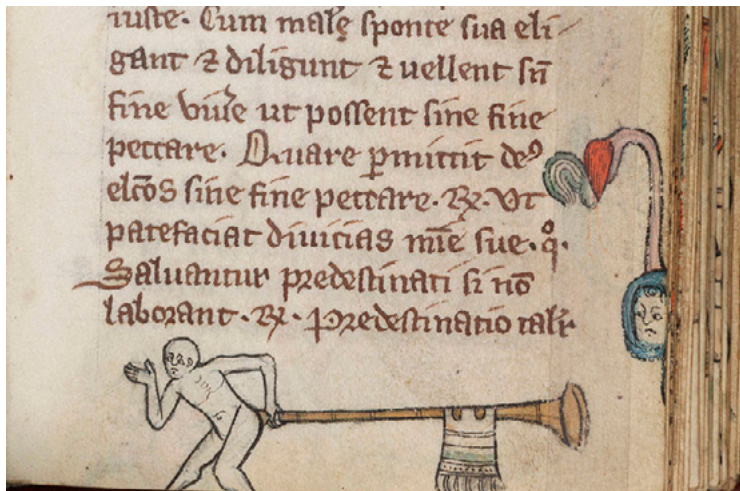 iuste. Cum male sponte sua eli
gant ⁊ diligunt ⁊ uellent sn̄
fine viu̾e ut possent sine fine
peccare. Quare ꝑmittit deꝰ
elc̄os sine fine peccare. R̷. Vt
patefaciat diuicias mīe sue. q̊.
Saluantur predestinati si nō
laborant. R̷. Predestinatio tal̾r